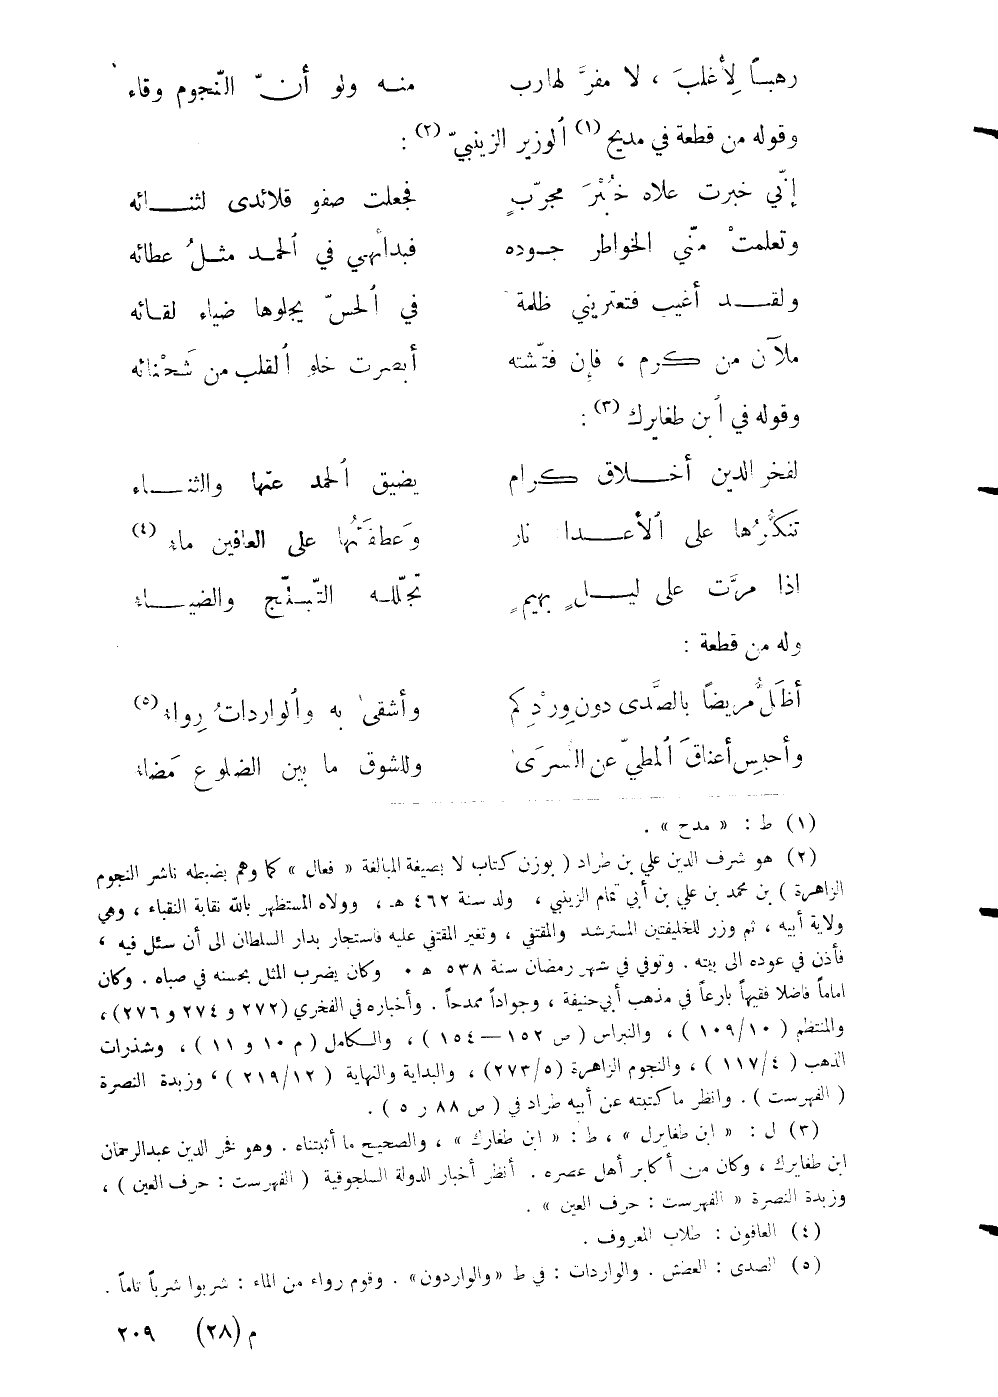 رهبـاً لِأغلبَ ، لا مفرَّ لهارب منـه ولو أنّ النّجوم وقاء
وقوله من قطعة في مديح (١) ٱلوزير الزينبيّ (٢) :
إنّي خبرت علاه خُبْرَ مجرّبٍ فجعلت صفو قلائدى لثنـــائه
وتعلمتْ منّي الخواطر جـوده فبدأنهي في ٱلحمـد مثـلُ عطائه
ولقـــد أغيب فتعتريني ظلمة في ٱلحسّ يجلوها ضياء لقـائه
ملآن من كرم ، فإن فتّشته أبصرت خلو ٱلقلب من شَحْنائه
وقوله في ٱبن طغايرك (٣) :
لفخر الدين أخـــلاق كرام يضيق ٱلحمد عنها والثنـــاء
تنكُّرُها على ٱلأعـــدا نار وَعطفَتُها على العافين ماء (٤)
اذا مرَّت على ليـــلٍ بهيمٍ تجلّلـه التّبـلّج والضيـــاء
وله من قطعة :
أظَلُّ مريضاً بالصَّدى دون وِرْدِكم وأشقىٰ به وٱلوارداتُ رِواء (٥)
وأحبِس أعناقَ ٱلمطيّ عن السُّرَىٰ وللشوق ما بين الضلوع مَضاء
(١) ط : « مدح » .
(٢) هو شرف الدين علي بن طراد ( بوزن كتاب لا بصيغة المبالغة « فعال » كما وهم بضبطه ناشر النجوم
الزاهرة ) بن محمد بن علي بن أبي تمام الزينبي ، ولد سنة ٤٦٢ هـ ، وولاه المستظهر بالله نقابة النقباء ، وهي
ولاية أبيه ، ثم وزر للخليفتين المسترشد والمقتفي ، وتغير المقتفي عليه فاستجار بدار السلطان الى أن سئل فيه ،
فأذن في عوده الى بيته . وتوفي في شهر رمضان سنة ٥٣٨ هـ . وكان يضرب المثل بحسنه في صباه . وكان
اماماً فاضلا فقيهاً بارعاً في مذهب أبي حنيفة ، وجواداً ممدحاً . وأخباره في الفخري (٢٧٢ و ٢٧٤ و ٢٧٦) ،
والمنتظم ( ١٠٩/١٠ ) ، والنبراس ( ص ١٥٢ – ١٥٤ ) ، والـكامل ( م ١٠ و ١١ ) ، وشذرات
الذهب ( ١١٧/٤ ) ، والنجوم الزاهرة (٢٧٣/٥) ، والبداية والنهاية ( ٢١٩/١٢ ) ، وزبدة النصرة
( الفهرست ) . وانظر ما كتبته عن أبيه طراد في ( ص ٨٨ ر ٥ ) .
(٣) ل : « ابن طغايرل » ، ط : « ابن طغارك » ، والصحيح ما أثبتناه . وهو فخر الدين عبدالرحمان
ابن طغايرك ، وكان من أكابر أهل عصره . أنظر أخبار الدولة السلجوقية ( الفهرست : حرف العين ) ،
وزبدة النصرة « الفهرست : حرف العين » .
(٤) العافون : طلاب المعروف .
(٥) الصدى : العطش . والواردات : في ط «والواردون» . وقوم رواء من الماء : شربوا شرباً تاماً .
م (٢٨) ٢٠٩